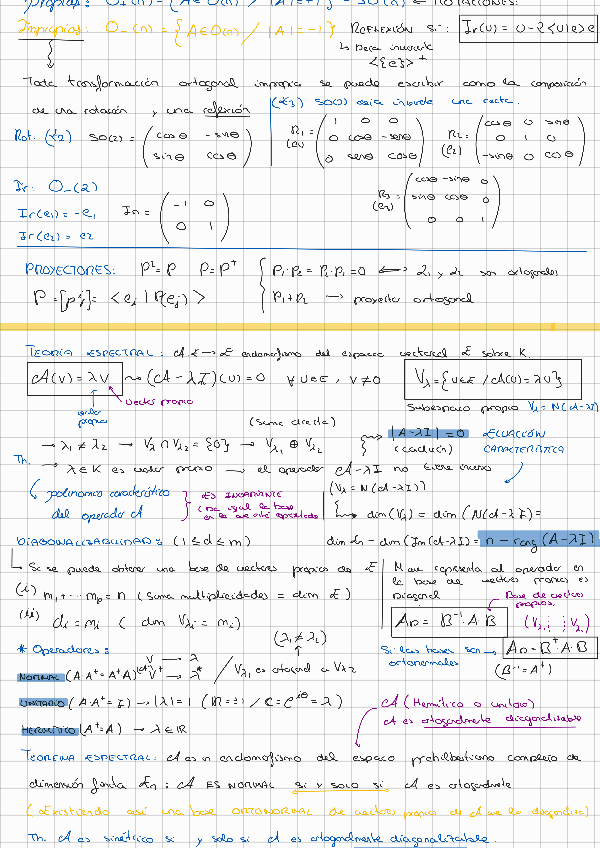 Impropias: O_(n) = {A∈O(n) / |A|=-1} REFLEXIÓN si: Ir(u) = u-2<u|e>e
↳ Deja invariante <{e}>⊥
Toda transformación ortogonal impropia se puede escribir como la composición
de una rotación y una reflexión (E3) SO(3) deja invariante una recta.
Rot. (E2) SO(2) = (cosθ -senθ / sinθ cosθ) R1 = (e1) (1 0 0 / 0 cosθ -senθ / 0 senθ cosθ) R2 = (e2) (cosθ 0 senθ / 0 1 0 / -sinθ 0 cosθ)
Ir: O_(2)
Ir(e1) = -e1 In = (-1 0 / 0 1) R3 = (e3) (cosθ -sinθ 0 / sinθ cosθ 0 / 0 0 1)
Ir(e2) = e2
PROYECTORES: P²=P P=P⁺ { P1·P2 = P2·P1 = 0 ⟷ L1 y L2 son ortogonales
P = [pij] = <ei | P(ej)> P1+P2 → proyector ortogonal
TEORÍA ESPECTRAL: A E→E endomorfismo del espacio vectorial E sobre K.
A(v) = λv ⤳ (A-λI)(v) = 0 ∀v∈E, v≠0 Vλ = {v∈E / A(v) = λv}
vector propio
valor propio
Subespacio propio Vλ = N(A-λI)
(suma directa)
→ λ1 ≠ λ2 → Vλ1 ∩ Vλ2 = {0} → Vλ1 ⊕ Vλ2 |A-λI| = 0 ECUACIÓN CARACTERÍSTICA
Th. → λ∈K es valor propio → el operador A-λI no tiene inverso
polinomio característico del operador A } ES INVARIANTE
(Vλ = N(A-λI))
dim(Vλ) = dim(N(A-λI)) =
DIAGONALIZABILIDAD: (1≤d≤m) dim En - dim(Im(A-λI)) = n - rang(A-λI)
↳ Si se puede obtener una base de vectores propios de E
(i) m1 + ··· mp = n (suma multiplicidades = dim E)
(ii) di = mi (dim Vλi = mi)
M que representa al operador en la base de vectores propios es Diagonal
AD = B⁻¹·A·B Base de vectores propios. (V1 ⋮ ⋮ V2)
Si las bases son ortonormales → AD = B⁺·A·B
(B⁻¹ = A⁺)
* Operadores: (λi ≠ λj)
NORMAL (A·A⁺ = A⁺A) V → λ / Vλ1 es ortogonal a Vλ2
UNITARIO (A·A⁺ = I) → |λ| = 1 (R = ±1 / C = e^iθ = λ)
HERMÍTICO (A⁺=A) → λ∈R
A (Hermítico o unitario)
A es ortogonalmente diagonalizable
TEOREMA ESPECTRAL: A es n endomorfismo del espacio prehilbertiano complejo de
dimensión finita En: A ES NORMAL si y solo si A es ortogonalmente
(Existiendo así una base ORTONORMAL de vectores propios de A que lo diagonaliza)
Th. A es simétrico si y solo si A es ortogonalmente diagonalizable.